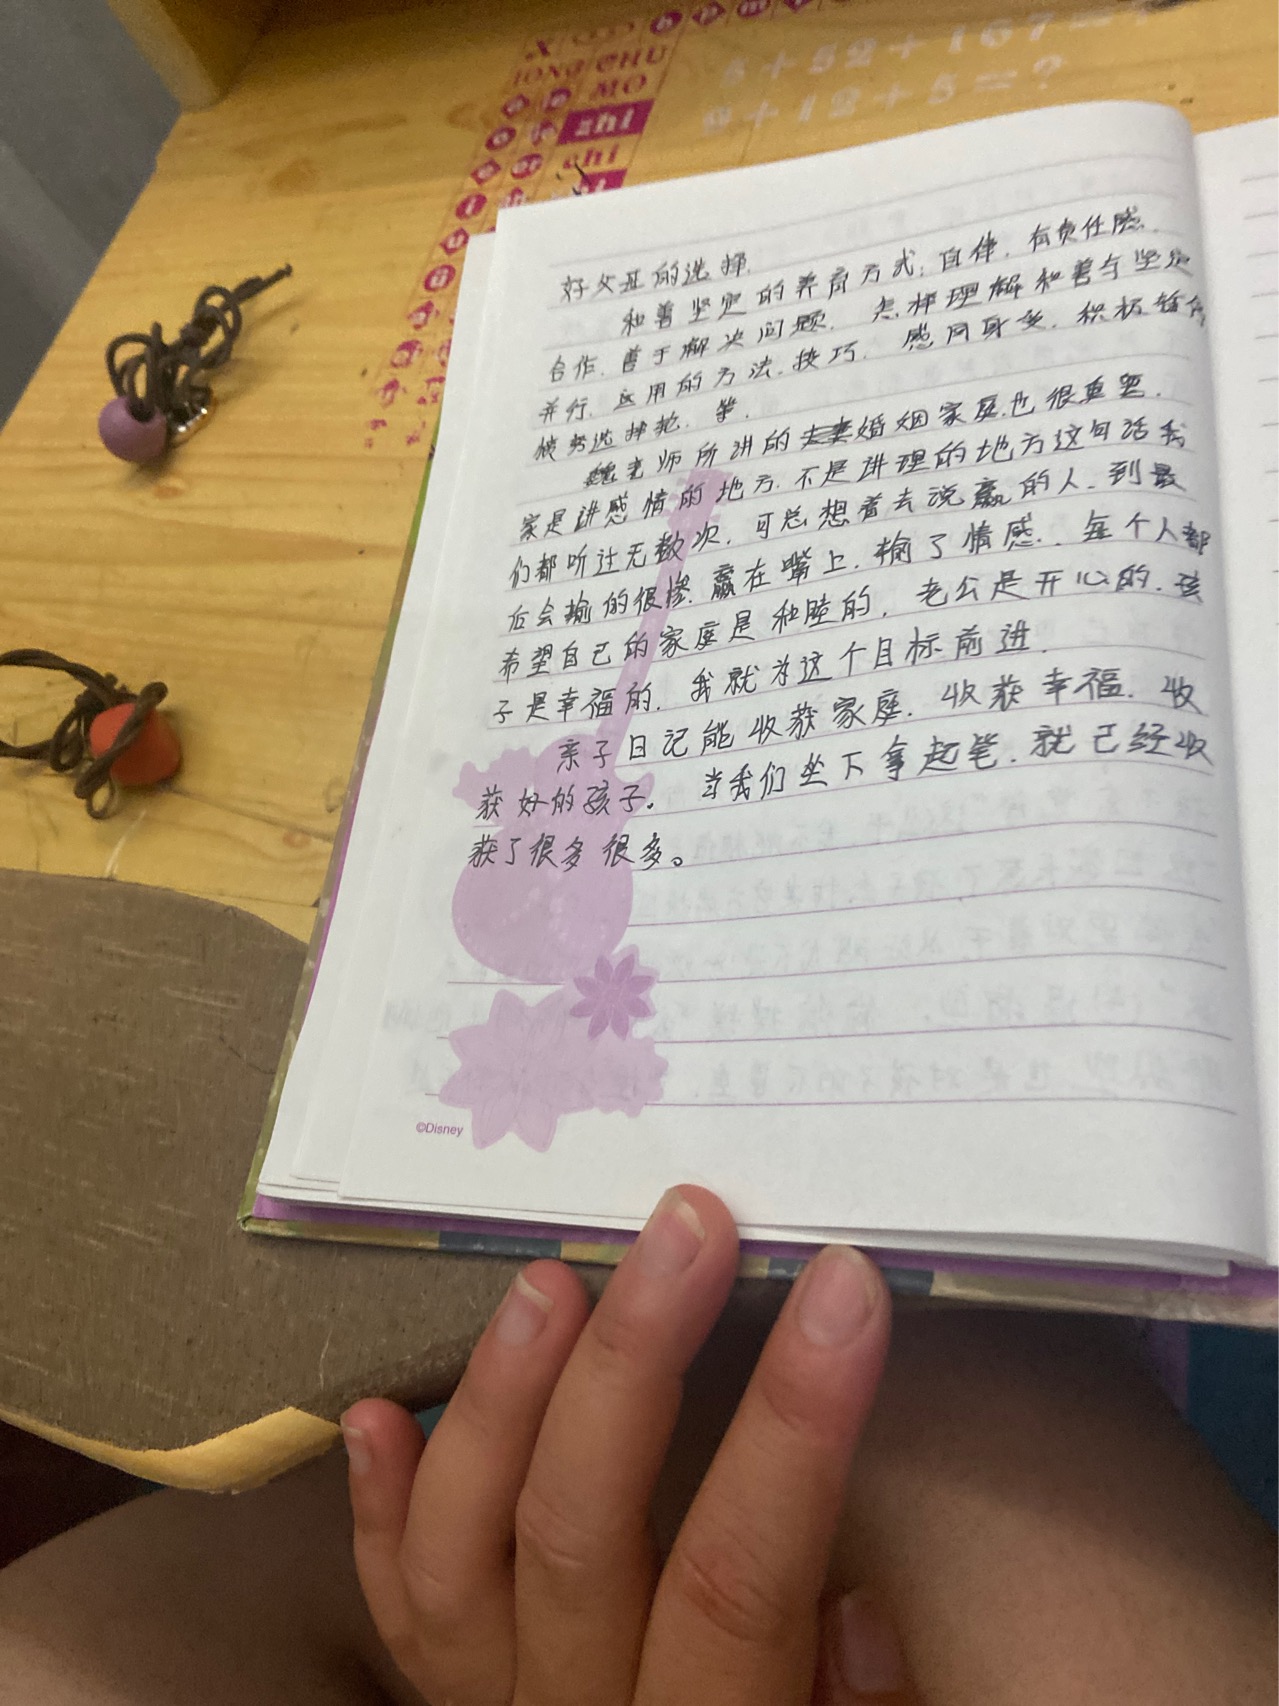 X
IONG CHU
MO
zhi
chi
5+52+167=
9+12+5=?
好父母的选择.
和善坚定的养育方式:自律.有责任感.
合作.善于解决问题.怎样理解和善与坚定
并行.运用的方法.技巧.感同身受.积极暂停
等.
魏老师所讲的婚姻家庭也很重要.
家是讲感情的地方.不是讲理的地方这句话我
们都听过无数次.可总想着去说赢的人.到最
后会输的很惨.赢在嘴上.输了情感.每个人都
希望自己的家庭是和睦的.老公是开心的.孩
子是幸福的.我就为这个目标前进.
亲子日记能收获家庭.收获幸福.收
获好的孩子。当我们坐下拿起笔.就已经收
获了很多很多。
©Disney